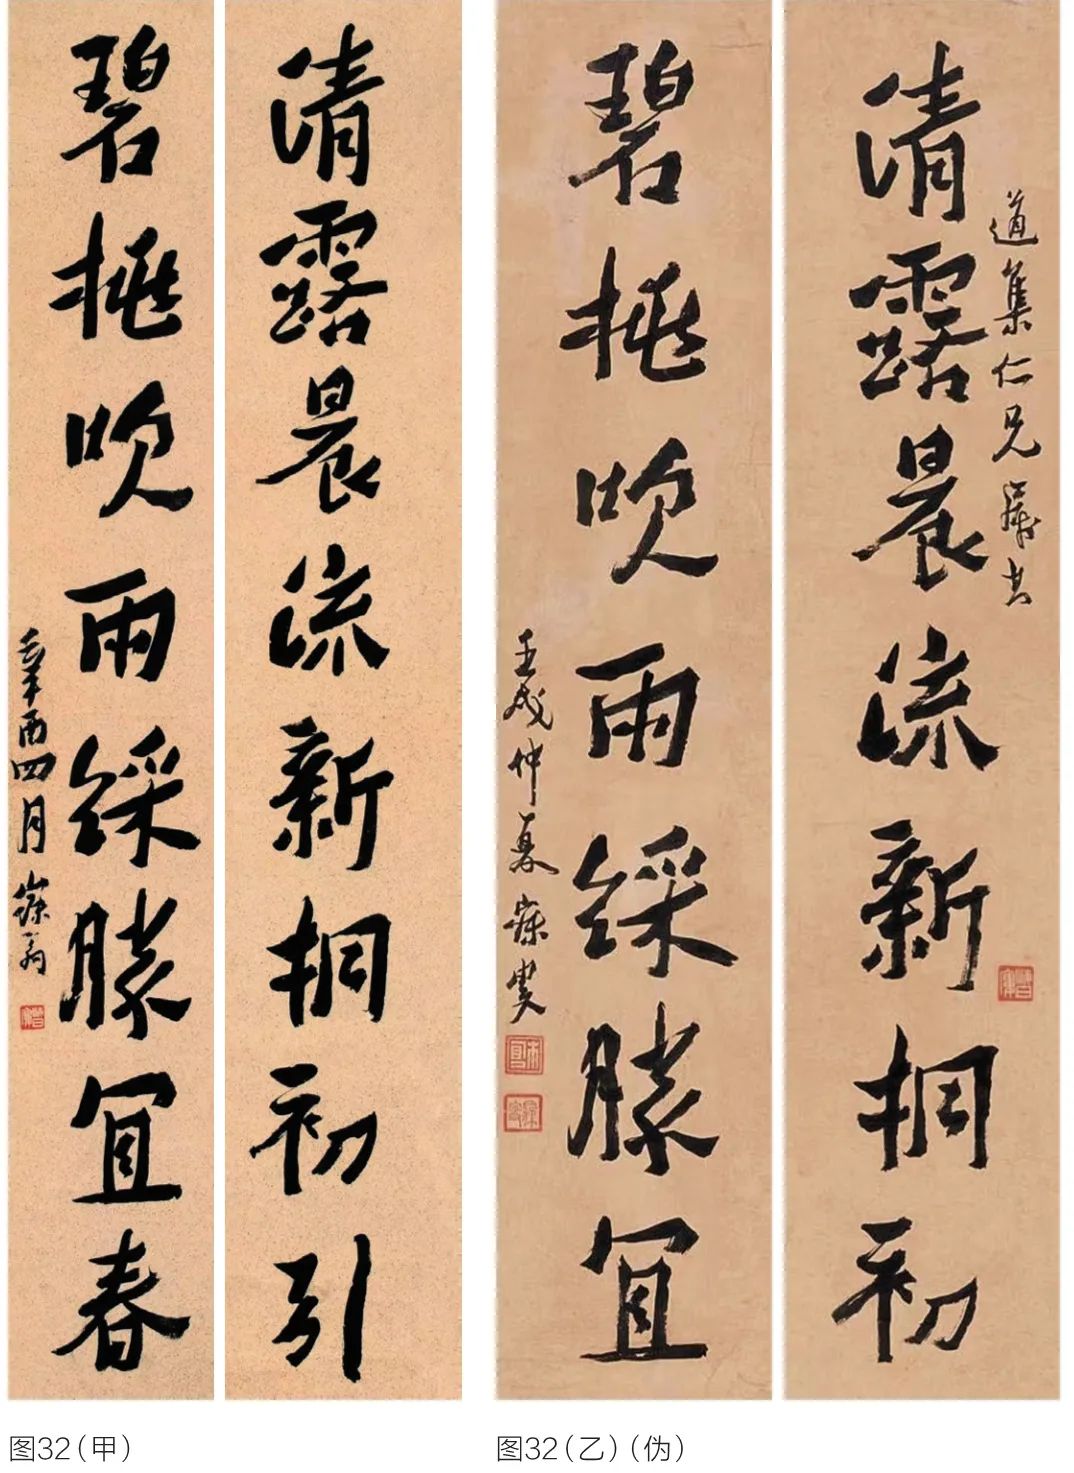 清露晨流新桐初引
碧桃吹雨綵勝宜春
辛酉四月寐翁
图32(甲)
道集仁兄屬書
清露晨流新桐初
碧桃吹雨綵勝宜
壬戌仲夏寐叟
图32(乙)(伪)